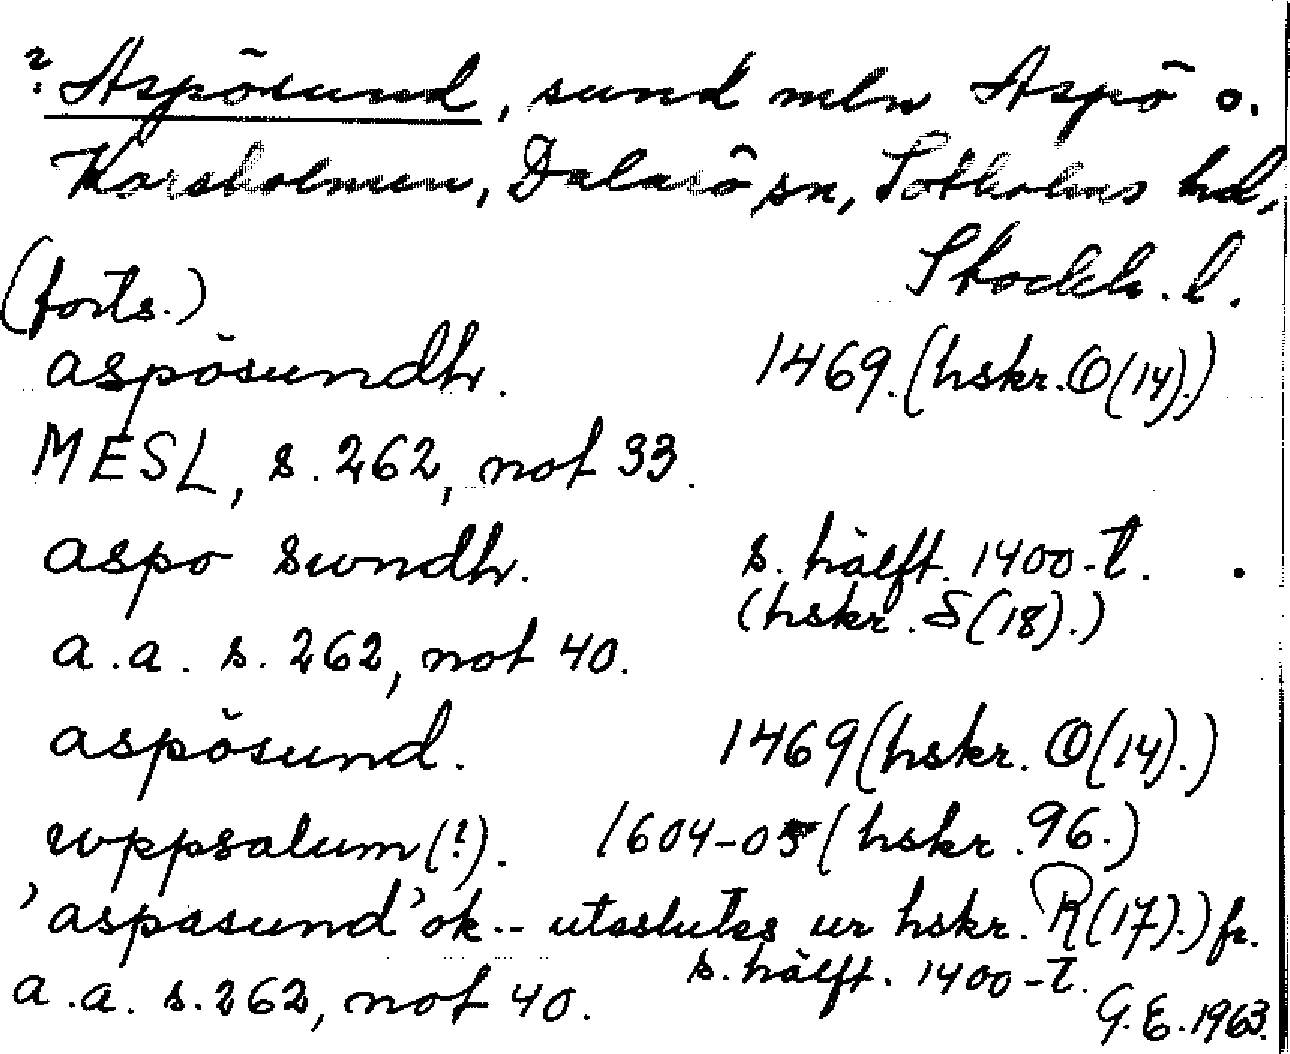 ? Aspösund, sund mln Aspö o.
Korsholmen, Dalarö sn, Sotholms hd,
Stockh. l.
(forts.)
aspösundh. 1469. (hskr. O(14).)
MESL, s. 262, not 33.
aspo swndh. s. hälft. 1400-t.
(hskr. S(18).)
a.a. s. 262, not 40.
aspösund. 1469 (hskr. O(14).)
wppsalum(!). 1604-05 (hskr. 96.)
'aspasund' ok -- uteslutes ur hskr. R(17).) fr.
s. hälft. 1400-t.
a.a. s. 262, not 40.
G.E. 1963.